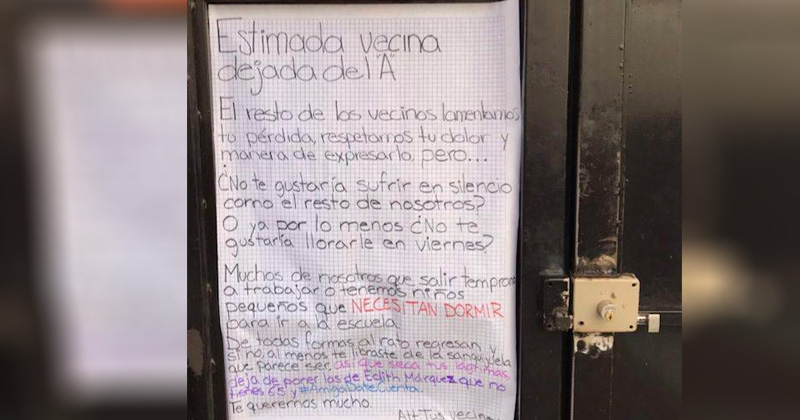 Estimada vecina
dejada del "A"
El resto de los vecinos lamentamos
tu pérdida, respetamos tu dolor y
manera de expresarlo, pero...
¿No te gustaría sufrir en silencio
como el resto de nosotros?
O ya por lo menos ¿No te
gustaría llorarle en viernes?
Muchos de nosotros que salir temprano
a trabajar o tenemos niños
pequeños que NECESITAN DORMIR
para ir a la escuela
De todas formas al rato regresan y
si no, al menos te libraste de la sanguijuela
que parece ser, así que seca tus lágrimas,
deja de poner las de Edith Márquez que no
tienes 65 y #AmigaDateCuenta
Te queremos mucho.
Att: Tus vecinos